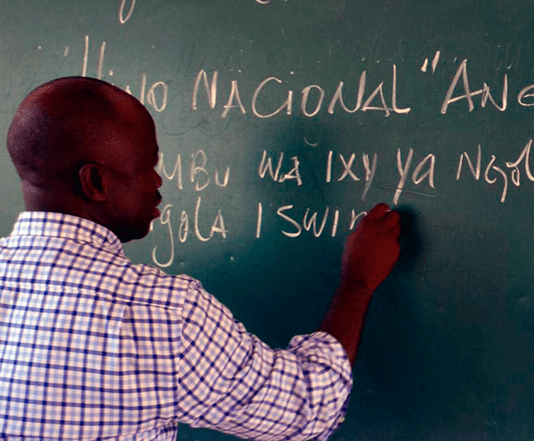 "Hino NACIONAL" ANG
MBU WA IXY YA NGOL
gola ISWIN